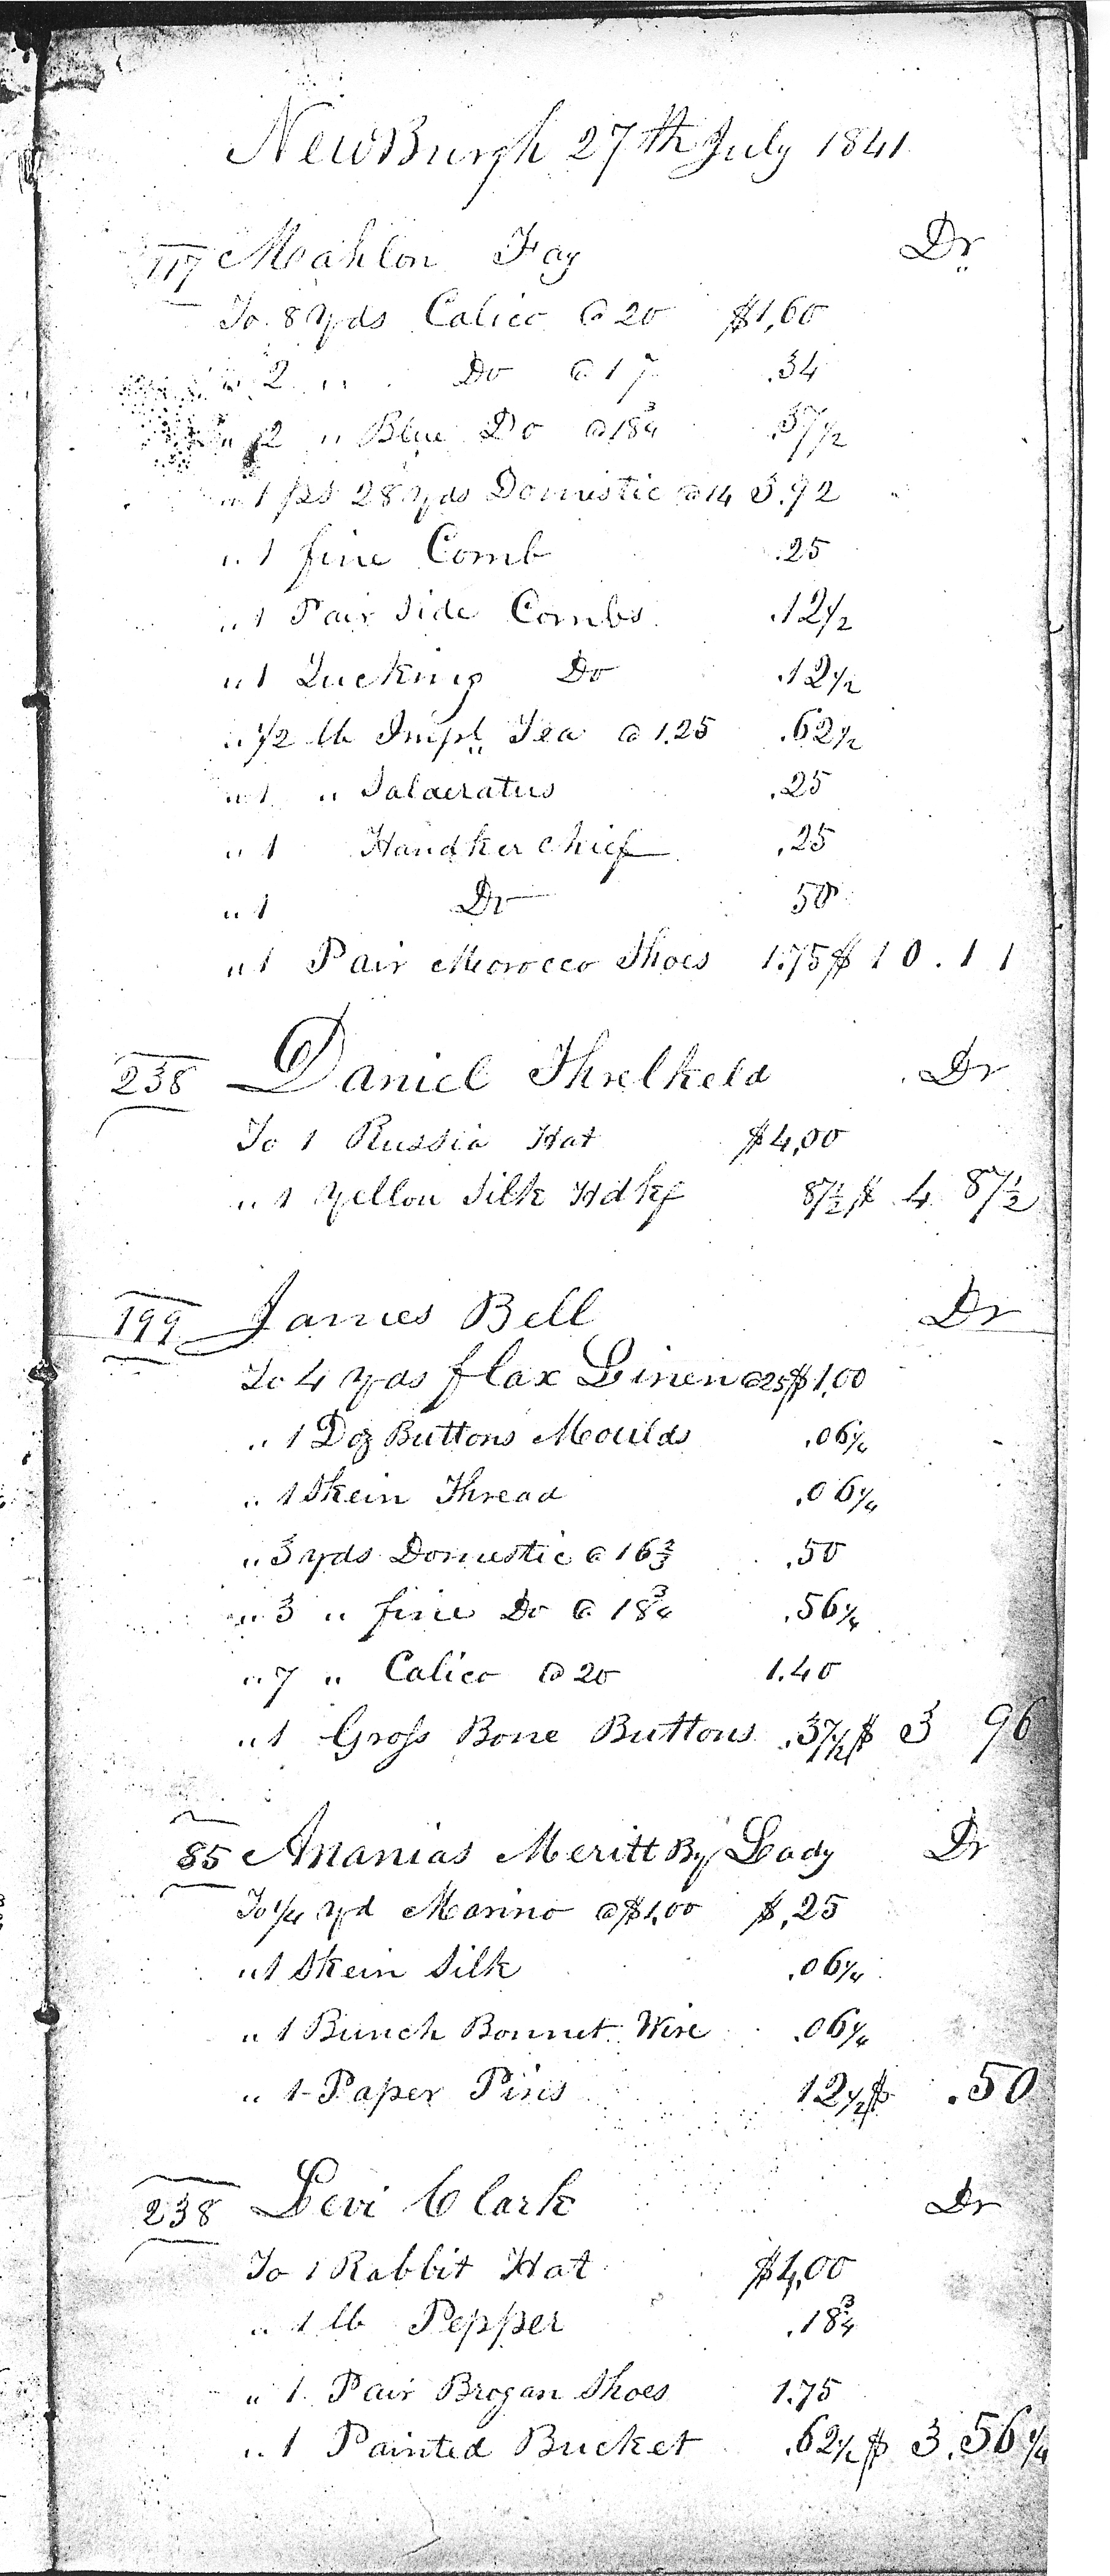 NewBurgh 27th July 1841
117 Mahlon Fay Dr
To 8 Yds Calico @ 20 $1,60
" 2 " Do @ 17 .34
" 2 " Blue Do @ 18 3/4 .37 1/2
" 1 ps 28 yds Domestic @ 14 3.92
" 1 fine Comb .25
" 1 Pair Side Combs .12 1/2
" 1 Tucking Do .12 1/2
" 1/2 lb Impl Tea @ 1.25 .62 1/2
" 1 " Salaeratus .25
" 1 Handkerchief .25
" 1 Do 50
" 1 Pair Morocco Shoes 1.75 $ 10.11
238 Daniel Threlkeld Dr
To 1 Russia Hat $4,00
" 1 Yellow Silk Hdkf 87 1/2 $ 4 87 1/2
199 James Bell Dr
To 4 yds flax Linen @ 25 $1,00
" 1 Doz Buttons Moulds .06 1/4
" 1 Skein Thread .06 1/4
" 3 yds Domestic @ 16 2/3 .50
" 3 " fine Do @ 18 3/4 .56 1/4
" 7 " Calico @ 20 1.40
" 1 Gross Bone Buttons .37 1/2 $ 3 96
85 Ananias Meritt By Lady Dr
To 1/4 yd Marino @ $1,00 $.25
" 1 Skein Silk .06 1/4
" 1 Bunch Bonnet Wire .06 1/4
" 1 Paper Pins 12 1/2 $ .50
238 Levi Clark Dr
To 1 Rabbit Hat $1,00
" 1 lb Pepper .18 3/4
" 1 Pair Brogan Shoes 1.75
" 1 Painted Bucket .62 1/2 $ 3.56 1/4